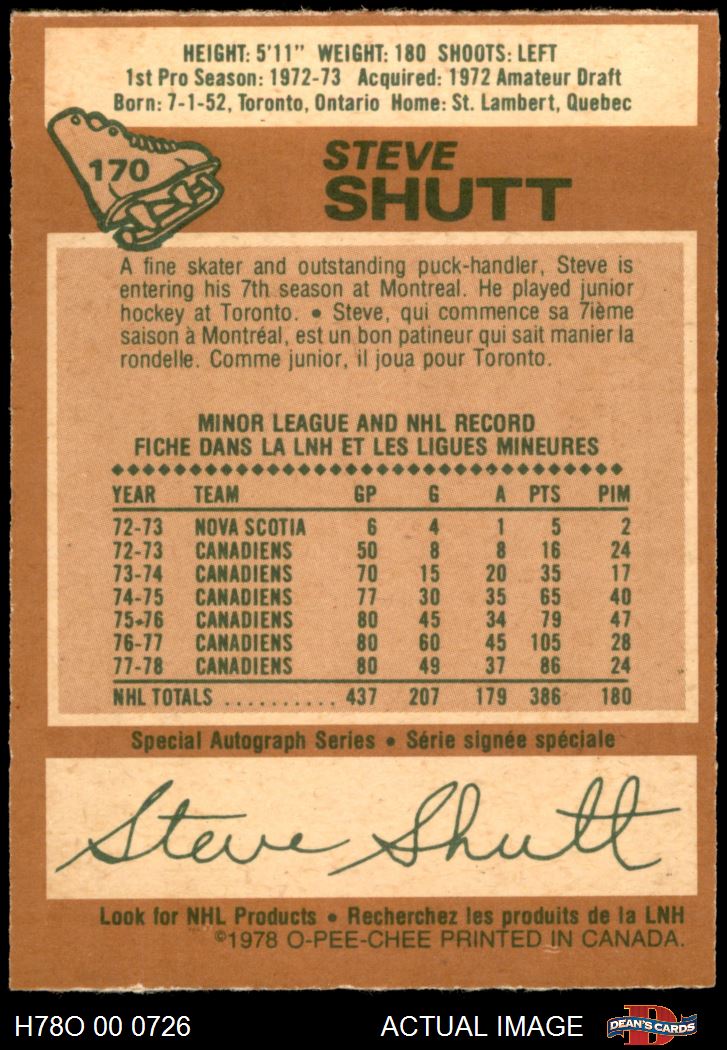 HEIGHT: 5'11" WEIGHT: 180 SHOOTS: LEFT
1st Pro Season: 1972-73 Acquired: 1972 Amateur Draft
Born: 7-1-52, Toronto, Ontario Home: St. Lambert, Quebec
170
STEVE
SHUTT
A fine skater and outstanding puck-handler, Steve is
entering his 7th season at Montreal. He played junior
hockey at Toronto. • Steve, qui commence sa 7ième
saison à Montréal, est un bon patineur qui sait manier la
rondelle. Comme junior, il joua pour Toronto.
MINOR LEAGUE AND NHL RECORD
FICHE DANS LA LNH ET LES LIGUES MINEURES
YEAR TEAM GP G A PTS PIM
72-73 NOVA SCOTIA 6 4 1 5 2
72-73 CANADIENS 50 8 8 16 24
73-74 CANADIENS 70 15 20 35 17
74-75 CANADIENS 77 30 35 65 40
75-76 CANADIENS 80 45 34 79 47
76-77 CANADIENS 80 60 45 105 28
77-78 CANADIENS 80 49 37 86 24
NHL TOTALS .......... 437 207 179 386 180
Special Autograph Series • Série signée spéciale
Steve Shutt
Look for NHL Products • Recherchez les produits de la LNH
©1978 O-PEE-CHEE PRINTED IN CANADA.
H78O 00 0726 ACTUAL IMAGE D DEAN'S CARDS